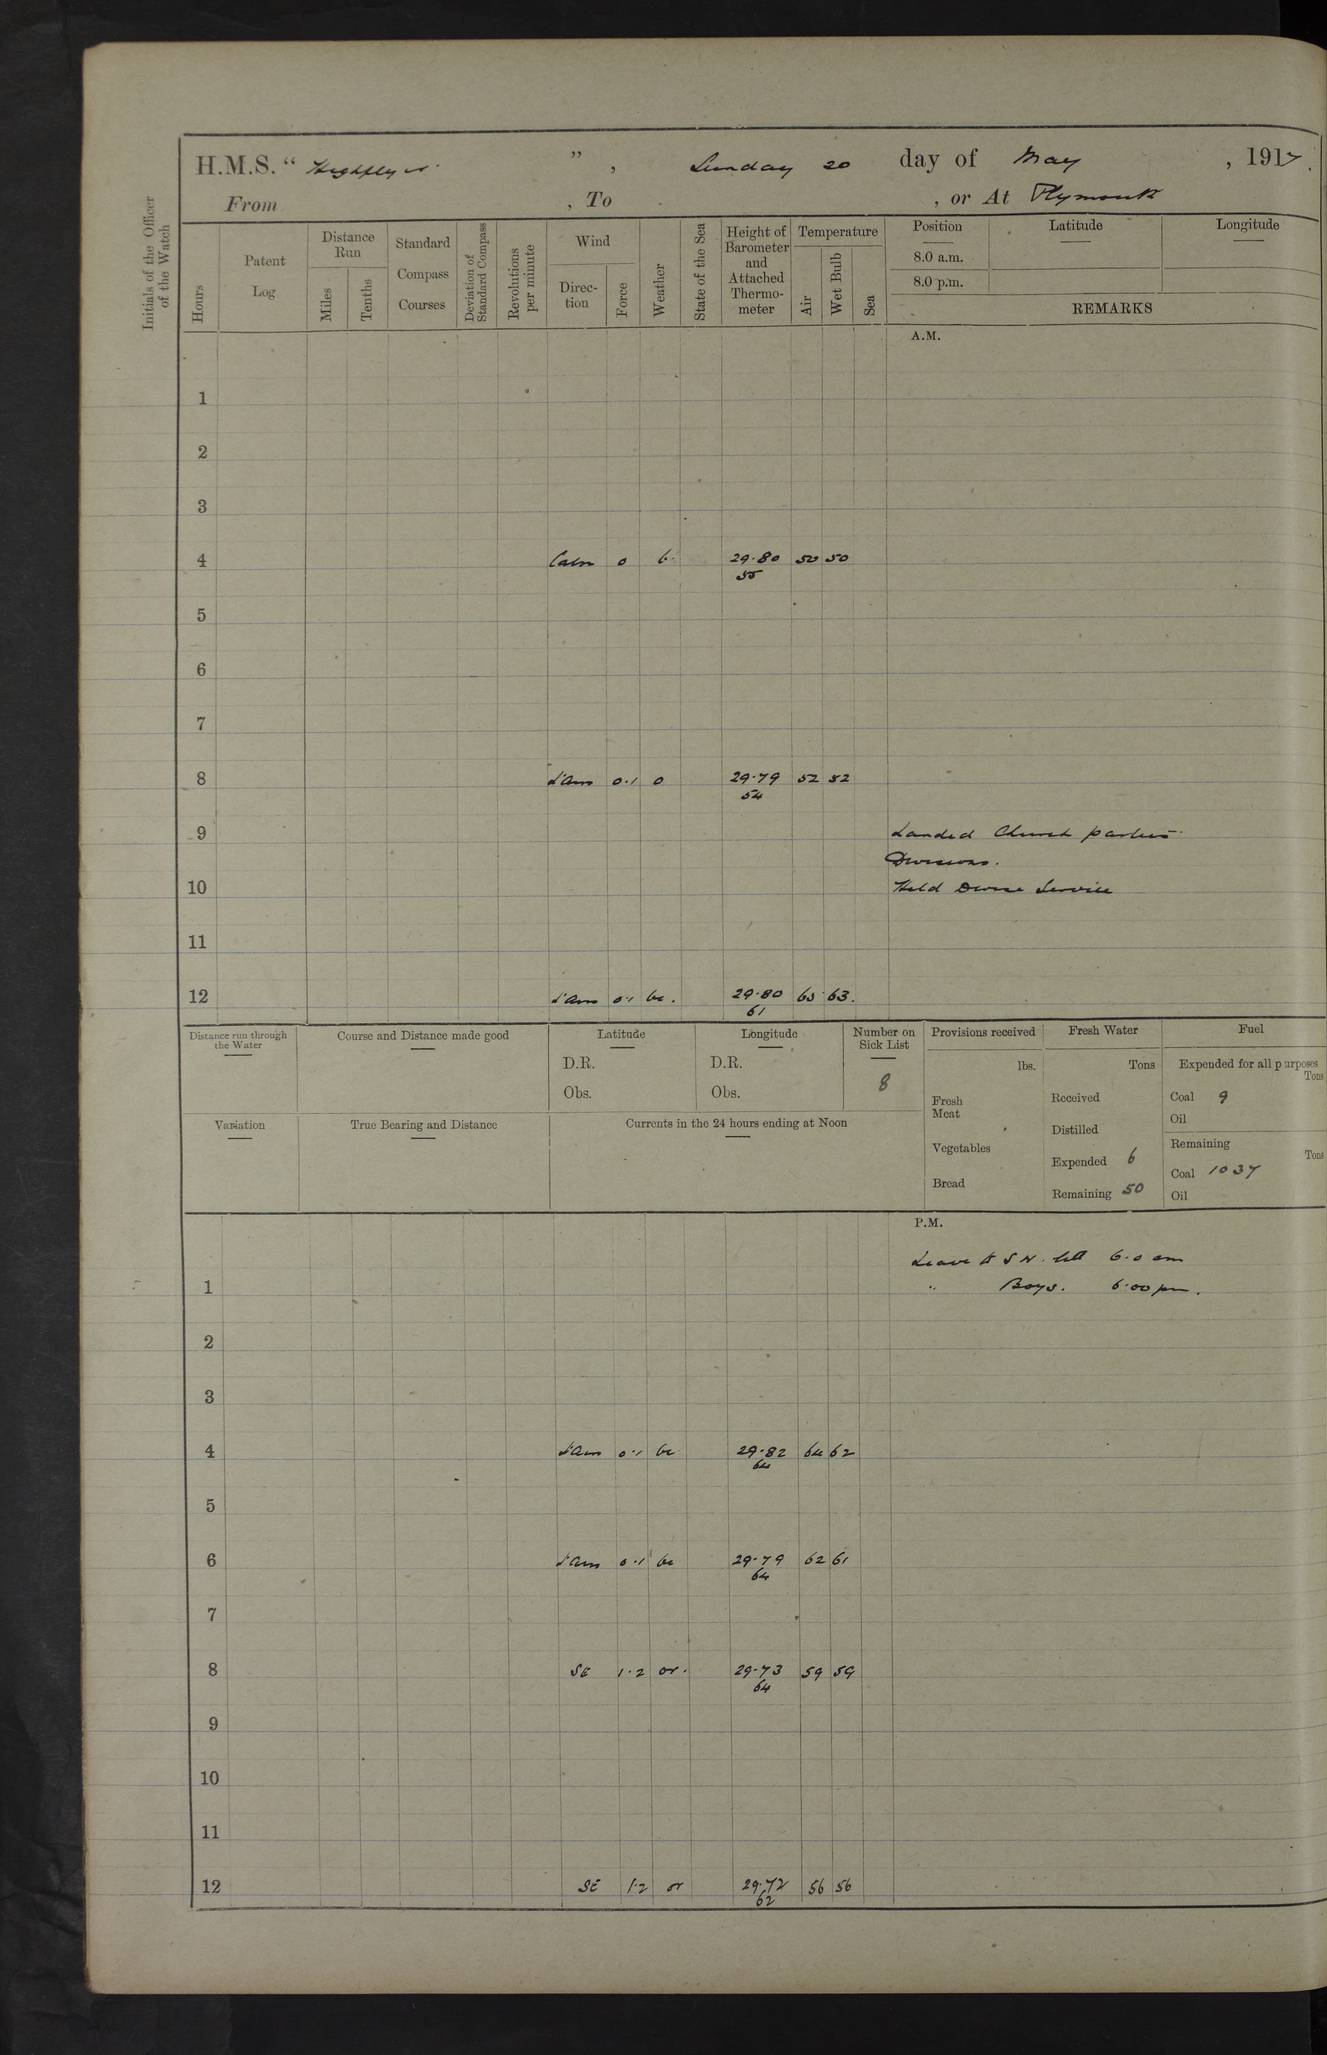 H.M.S. “ Highflyer ” , Sunday 20 day of May , 1917.
From , To , or At Plymouth
Initials of the Officer of the Watch
Hours
Patent Log
Distance Run
Miles
Tenths
Standard Compass Courses
Deviation of Standard Compass
Revolutions per minute
Wind
Direction
Force
Weather
State of the Sea
Height of Barometer and Attached Thermometer
Temperature
Air
Wet Bulb
Sea
Position Latitude Longitude
8.0 a.m.
8.0 p.m.
REMARKS
A.M.
1
2
3
4 Calm 0 b. 29.80 50 50
55
5
6
7
8 L'Airs 0.1 0 29.79 52 52
54
9 Landed Church parties
Divisions.
10 Held Divine Service
11
12 L'Airs 0.1 bc. 29.80 65 63.
61
Distance run through the Water
Course and Distance made good
Latitude
D.R.
Obs.
Longitude
D.R.
Obs.
Number on Sick List
8
Variation
True Bearing and Distance
Currents in the 24 hours ending at Noon
Provisions received
lbs.
Fresh Meat
Vegetables
Bread
Fresh Water
Tons
Received
Distilled
Expended 6
Remaining 50
Fuel
Expended for all purposes
Tons
Coal 9
Oil
Remaining
Tons
Coal 1037
Oil
P.M.
Leave to S W. till 6.0 am
1 " Boys. 6.00 pm.
2
3
4 L'Airs 0.1 bc 29.82 64 62
64
5
6 L'Airs 0.1 bc 29.79 62 61
64
7
8 SE 1.2 or. 29.73 59 59
64
9
10
11
12 SE 1.2 or 29.72 56 56
62